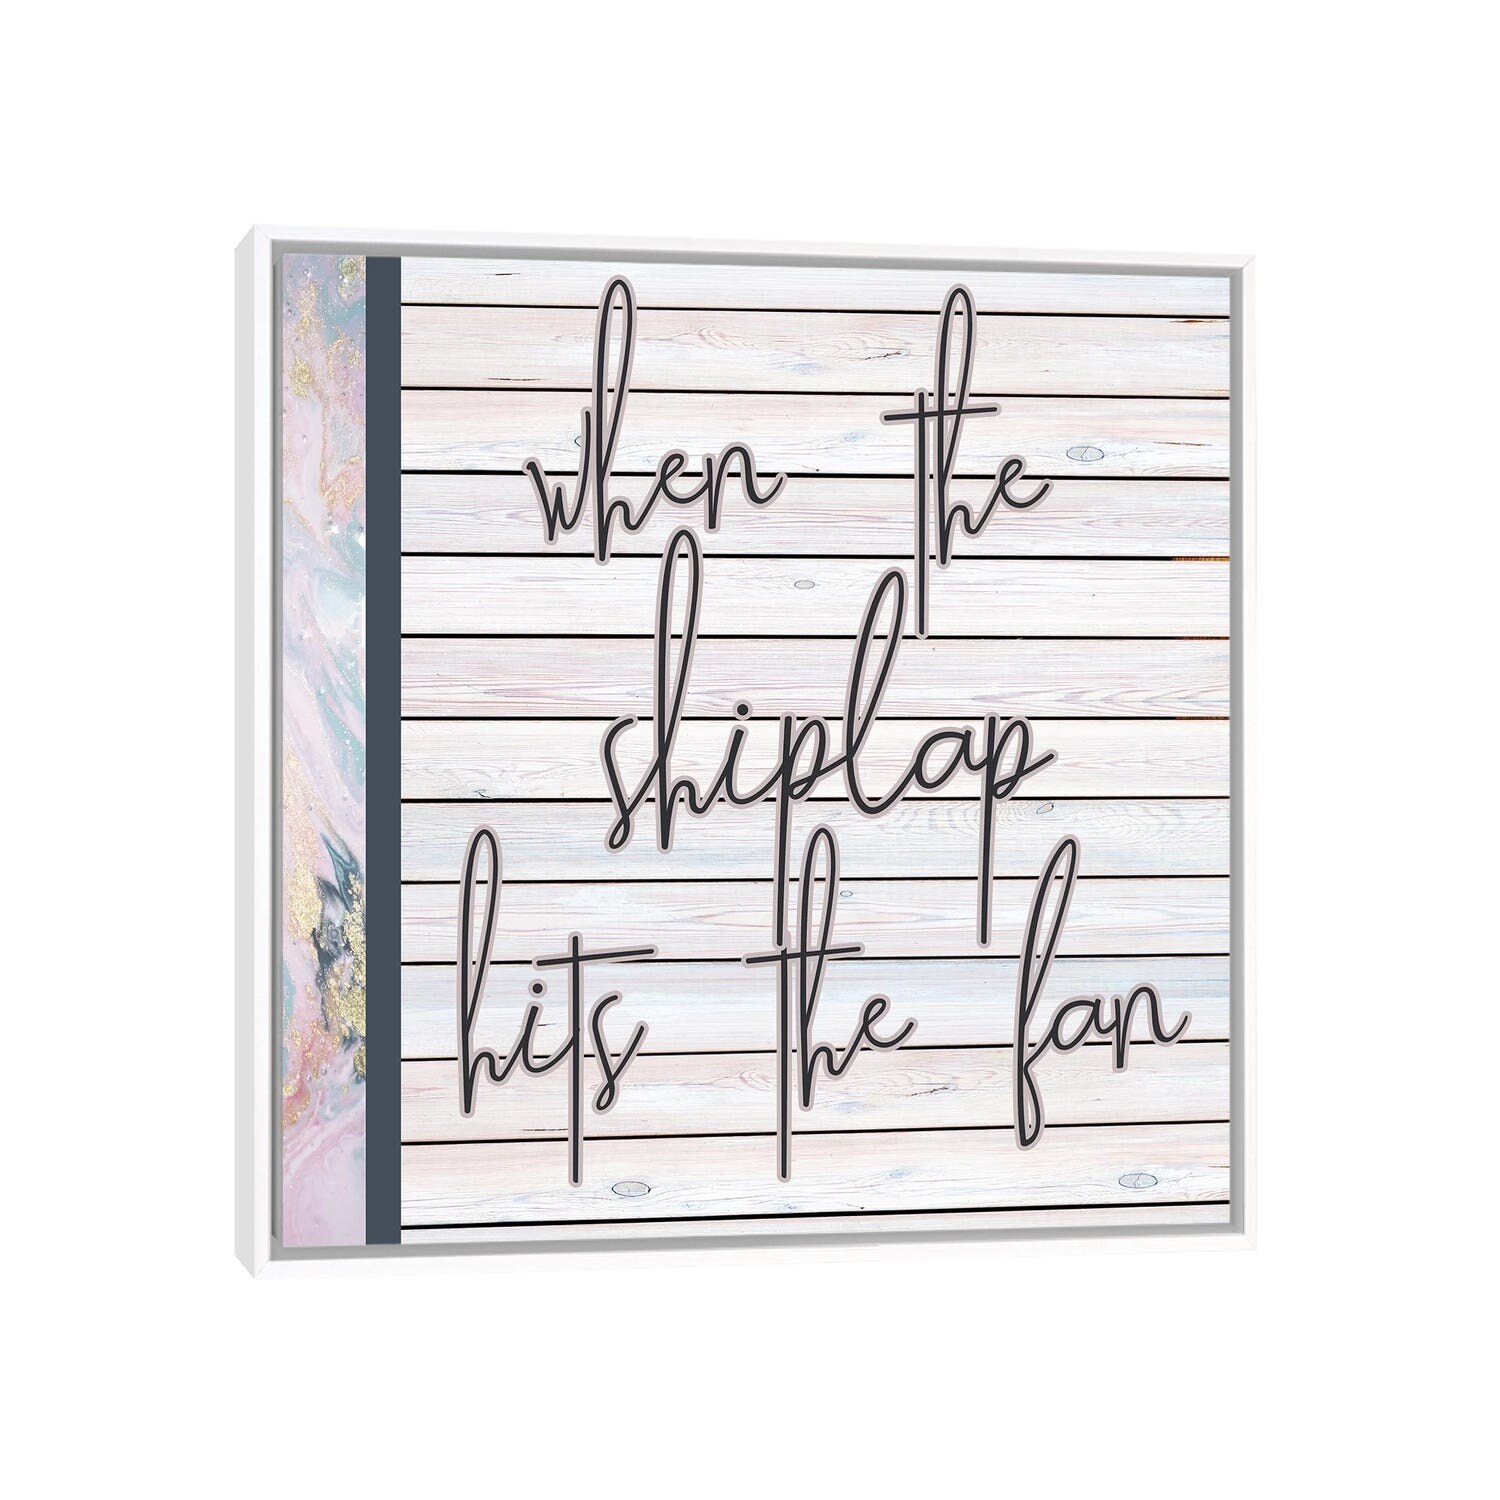 when the
shiplap
hits the fan